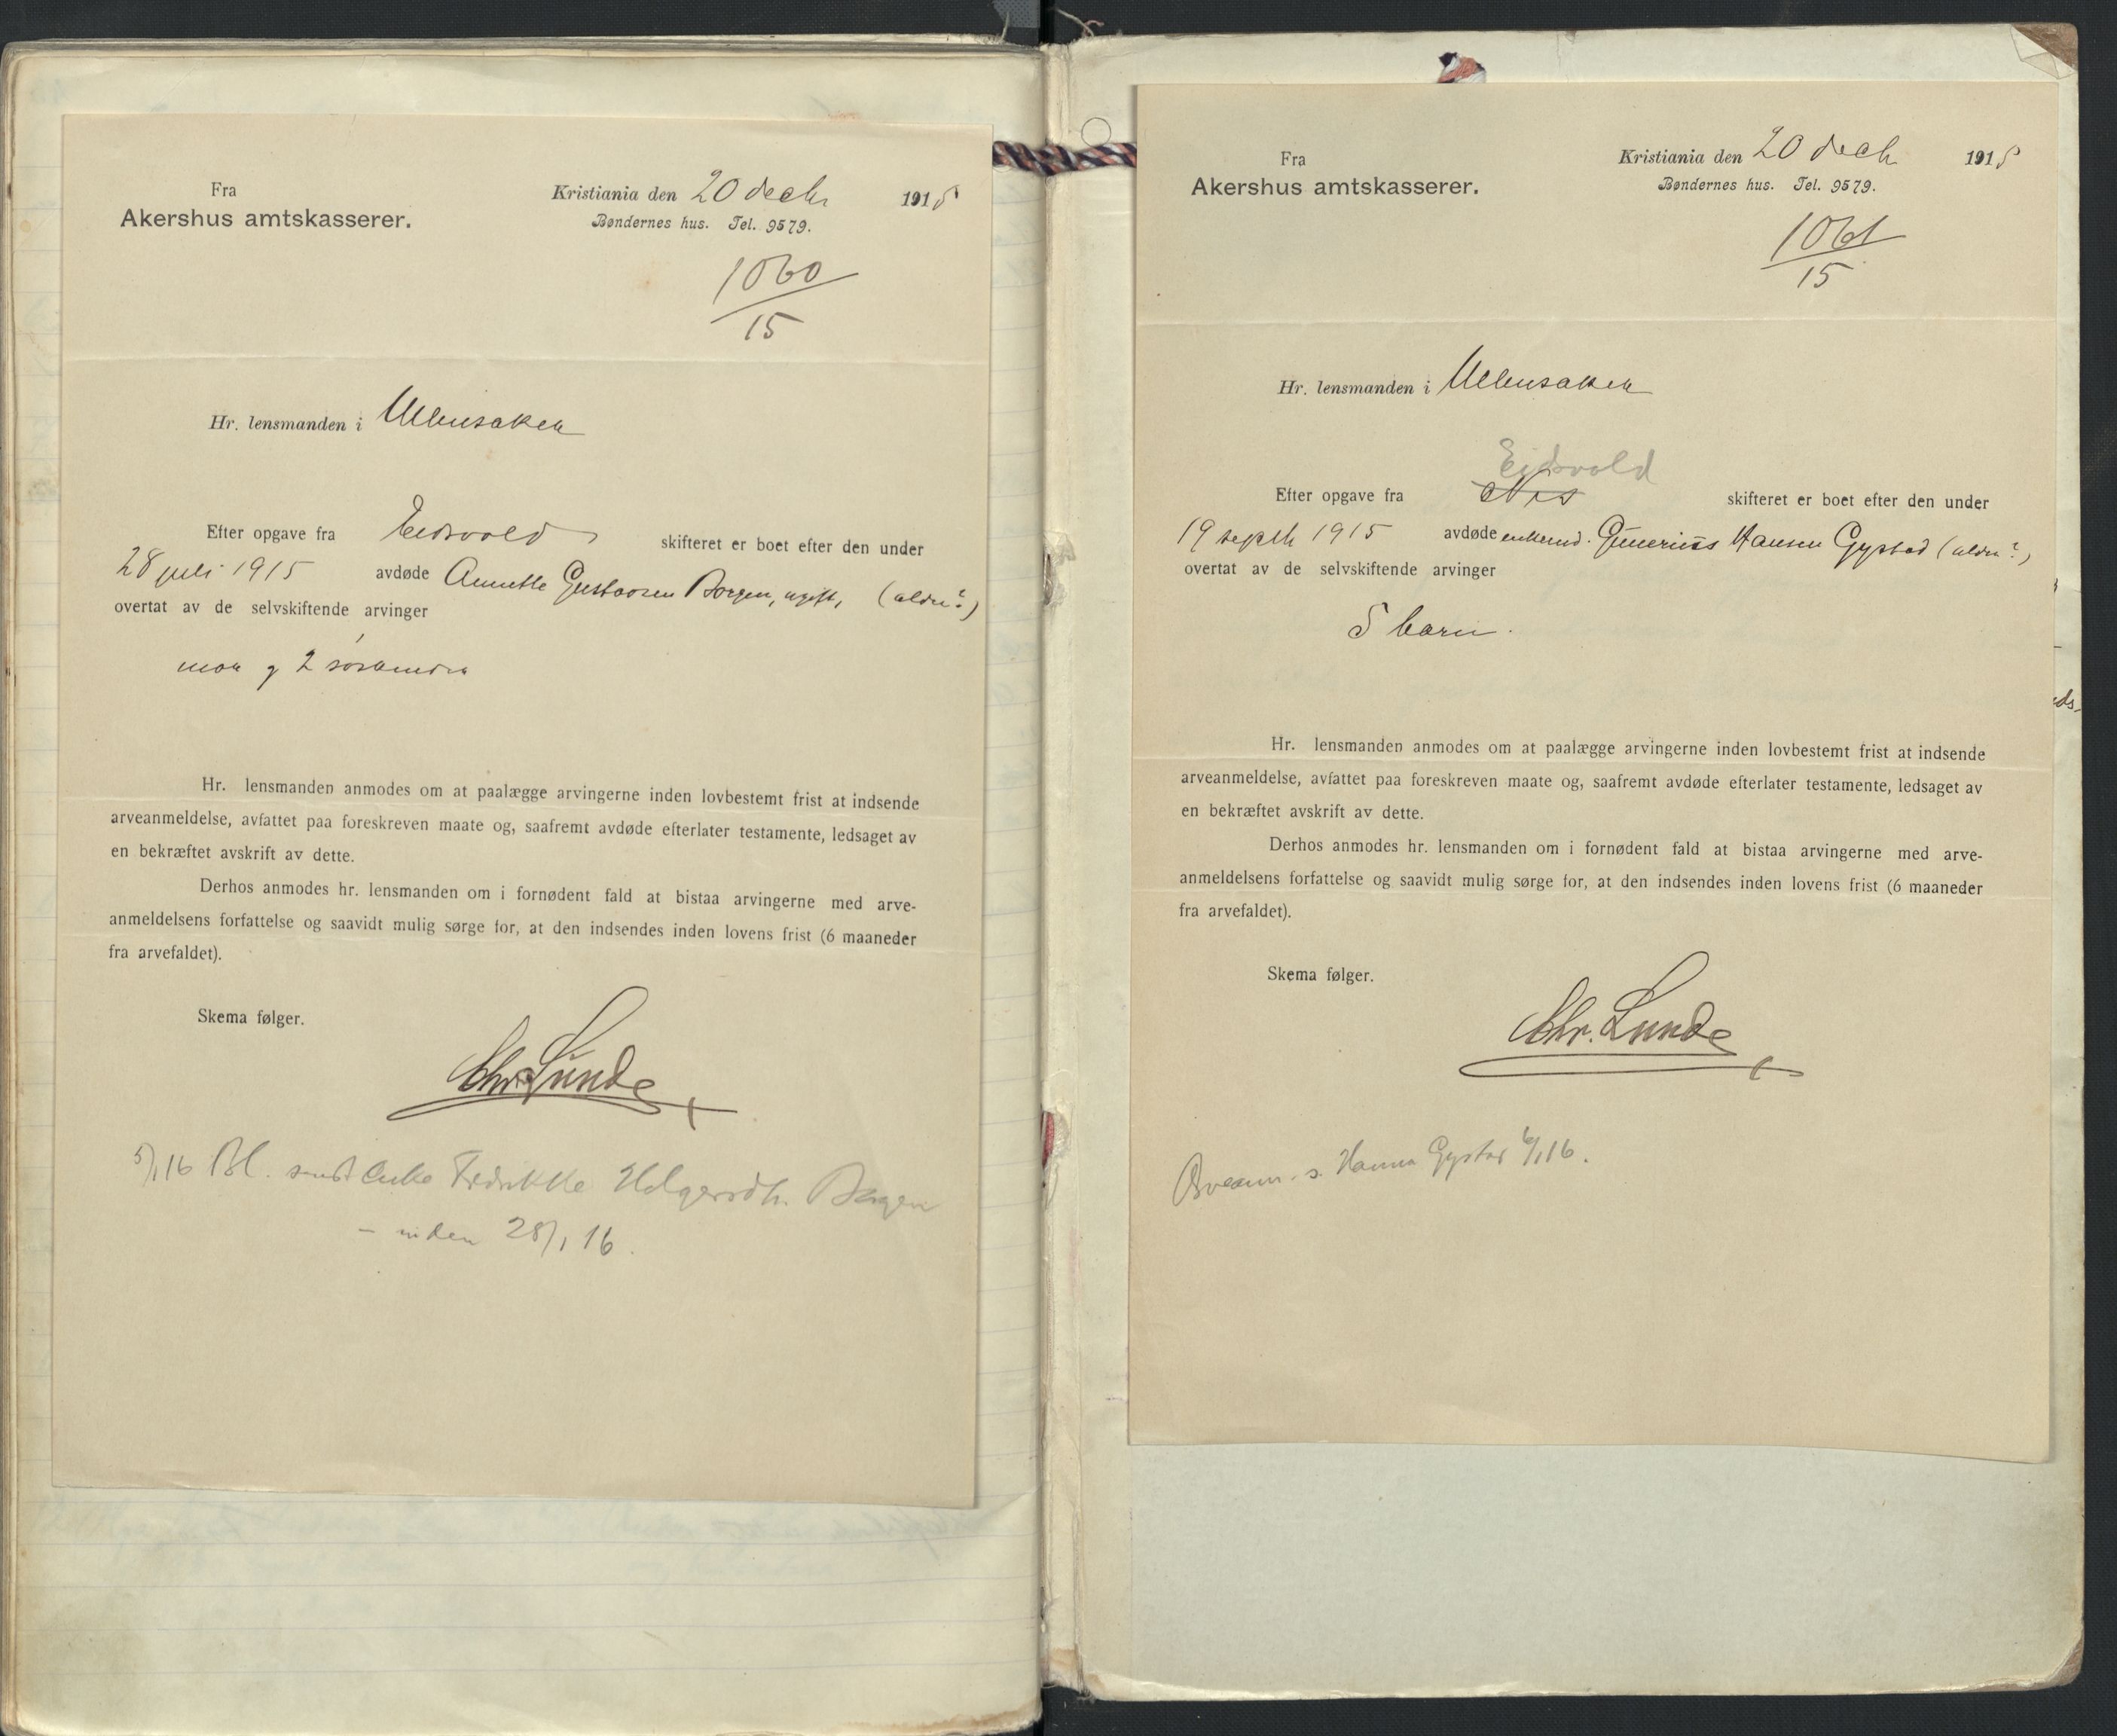 Fra
Akershus amtskasserer.
Kristiania den 20 decbr 1915
Bøndernes hus. Tel. 9579.
1060
15
Hr. lensmanden i Ullensaker
Efter opgave fra Eidsvold skifteret er boet efter den under
28 juli 1915 avdøde Annette Gustavsen Borgen, ugift, (alder?)
overtat av de selvskiftende arvinger
mor og 2 søskende
Hr. lensmanden anmodes om at paalægge arvingerne inden lovbestemt frist at indsende
arveanmeldelse, avfattet paa foreskreven maate og, saafremt avdøde efterlater testamente, ledsaget av
en bekræftet avskrift av dette.
Derhos anmodes hr. lensmanden om i fornødent fald at bistaa arvingerne med arve-
anmeldelsens forfattelse og saavidt mulig sørge for, at den indsendes inden lovens frist (6 maaneder
fra arvefaldet).
Skema følger.
Chr. Lunde
5/1 16 Bl. sendt Enke Fredrikke Holgersdtr. Borgen
- inden 28/1 16.
Fra
Akershus amtskasserer.
Kristiania den 20 decbr 1915
Bøndernes hus. Tel. 9579.
1061
15
Hr. lensmanden i Ullensaker
Eidsvold
Efter opgave fra Nes skifteret er boet efter den under
19 septbr 1915 avdøde enkemd. Gunerius Hansen Gystad (alder?)
overtat av de selvskiftende arvinger
5 barn.
Hr. lensmanden anmodes om at paalægge arvingerne inden lovbestemt frist at indsende
arveanmeldelse, avfattet paa foreskreven maate og, saafremt avdøde efterlater testamente, ledsaget av
en bekræftet avskrift av dette.
Derhos anmodes hr. lensmanden om i fornødent fald at bistaa arvingerne med arve-
anmeldelsens forfattelse og saavidt mulig sørge for, at den indsendes inden lovens frist (6 maaneder
fra arvefaldet).
Skema følger.
Chr. Lunde
s. Hanna Gystad 6/1 16.